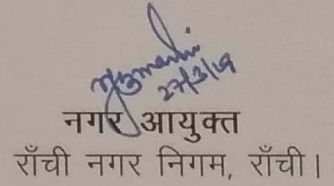 27/3/19
नगर आयुक्त
राँची नगर निगम, राँची।